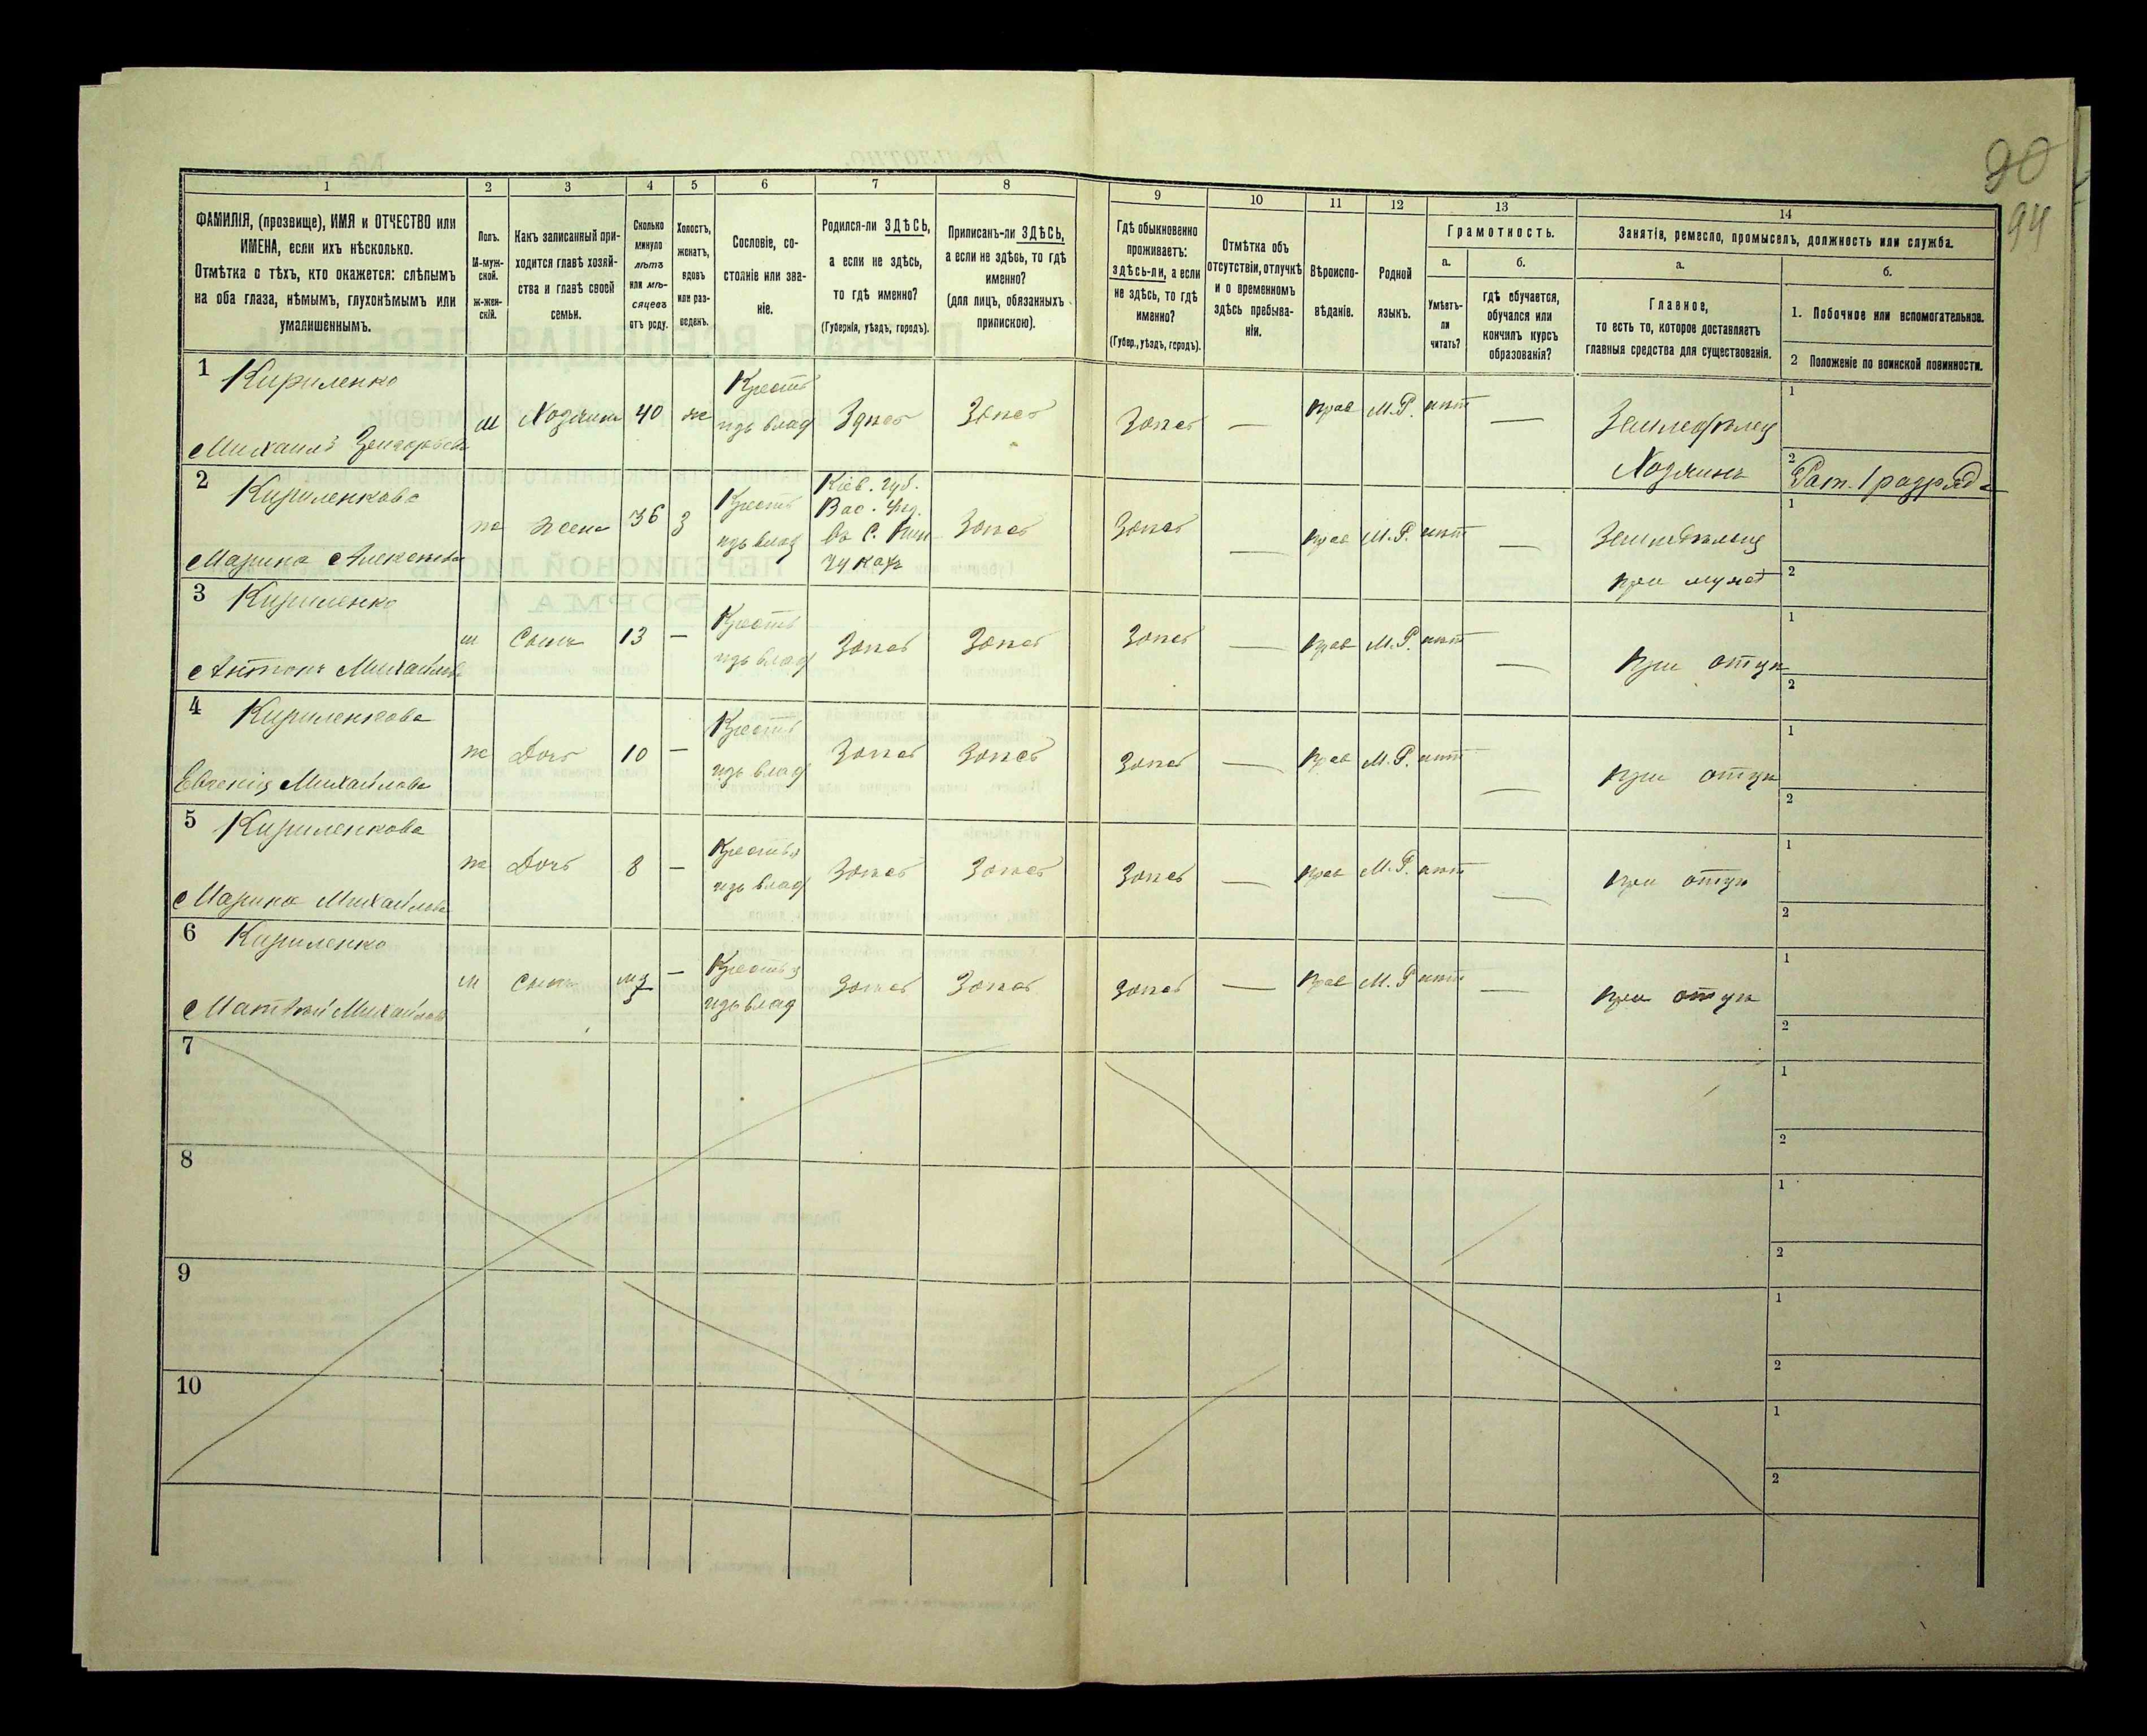 90
94
1
2
3
4
5
6
7
8
9
10
11
12
13
14
ФАМИЛІЯ, (прозвище), ИМЯ и ОТЧЕСТВО или
ИМЕНА, если ихъ нѣсколько.
Отмѣтка о тѣхъ, кто окажется: слѣпымъ
на оба глаза, нѣмымъ, глухонѣмымъ или
умалишеннымъ.
Полъ.
М-муж-
ской.
ж-жен-
скій.
Какъ записанный при-
ходится главѣ хозяй-
ства и главѣ своей
семьи.
Сколько
минуло
лѣтъ
или мѣ-
сяцевъ
отъ роду.
Холостъ,
женатъ,
вдовъ
или раз-
веденъ.
Сословіе, со-
стояніе или зва-
ніе.
Родился-ли ЗДѢСЬ,
а если не здѣсь,
то гдѣ именно?
(Губернія, уѣздъ, городъ).
Приписанъ-ли ЗДѢСЬ,
а если не здѣсь, то гдѣ
именно?
(для лицъ, обязанныхъ
припискою).
Гдѣ обыкновенно
проживаетъ:
здѣсь-ли, а если
не здѣсь, то гдѣ
именно?
(Губер., уѣздъ, городъ).
Отмѣтка объ
отсутствіи, отлучкѣ
и о временномъ
здѣсь пребыва-
ніи.
Вѣроиспо-
вѣданіе.
Родной
языкъ.
Грамотность.
а.
Умѣетъ-
ли
читать?
б.
гдѣ обучается,
обучался или
кончилъ курсъ
образованія?
Занятія, ремесло, промыселъ, должность или служба.
а.
Главное,
то есть то, которое доставляетъ
главныя средства для существованія.
б.
1. Побочное или вспомогательное.
2 Положеніе по воинской повинности.
1 Кириленко
Михаилъ
м Хозяинъ 40 ж
Крест
изъ влад
Здѣсь Здѣсь Здѣсь — прав М.Р. нѣт —
Земледѣлец
Хозяинъ
1
2 Рат. 1 разряда
2 Кириленкова
Марина Алексѣева
ж жена 36 з
Крест
изъ влад
Кіев. губ.
Вас. уѣз.
Здѣсь Здѣсь — прав М.Р. нѣт —
Земледѣлец
при мужѣ
1
2
3 Кириленко
Антонъ Михайлов
м Сынъ 13 —
Крест
изъ влад
Здѣсь Здѣсь Здѣсь — прав М.Р. нѣт —
при отцѣ
1
2
4 Кириленкова
Евгенія Михайлова
ж Дочь 10 —
Крест
изъ влад
Здѣсь Здѣсь Здѣсь — прав М.Р. нѣт —
при отцѣ
1
2
5 Кириленкова
Марина Михайлова
ж Дочь 8 —
Крестья
изъ влад
Здѣсь Здѣсь Здѣсь — прав М.Р. нѣт —
при отцѣ
1
2
6 Кириленко
Матвѣй Михайлов
м Сынъ —
Крестья
изъ влад
Здѣсь Здѣсь Здѣсь — прав М.Р. нѣт —
при отцѣ
1
2
7
1
2
8
1
2
9
1
2
10
1
2